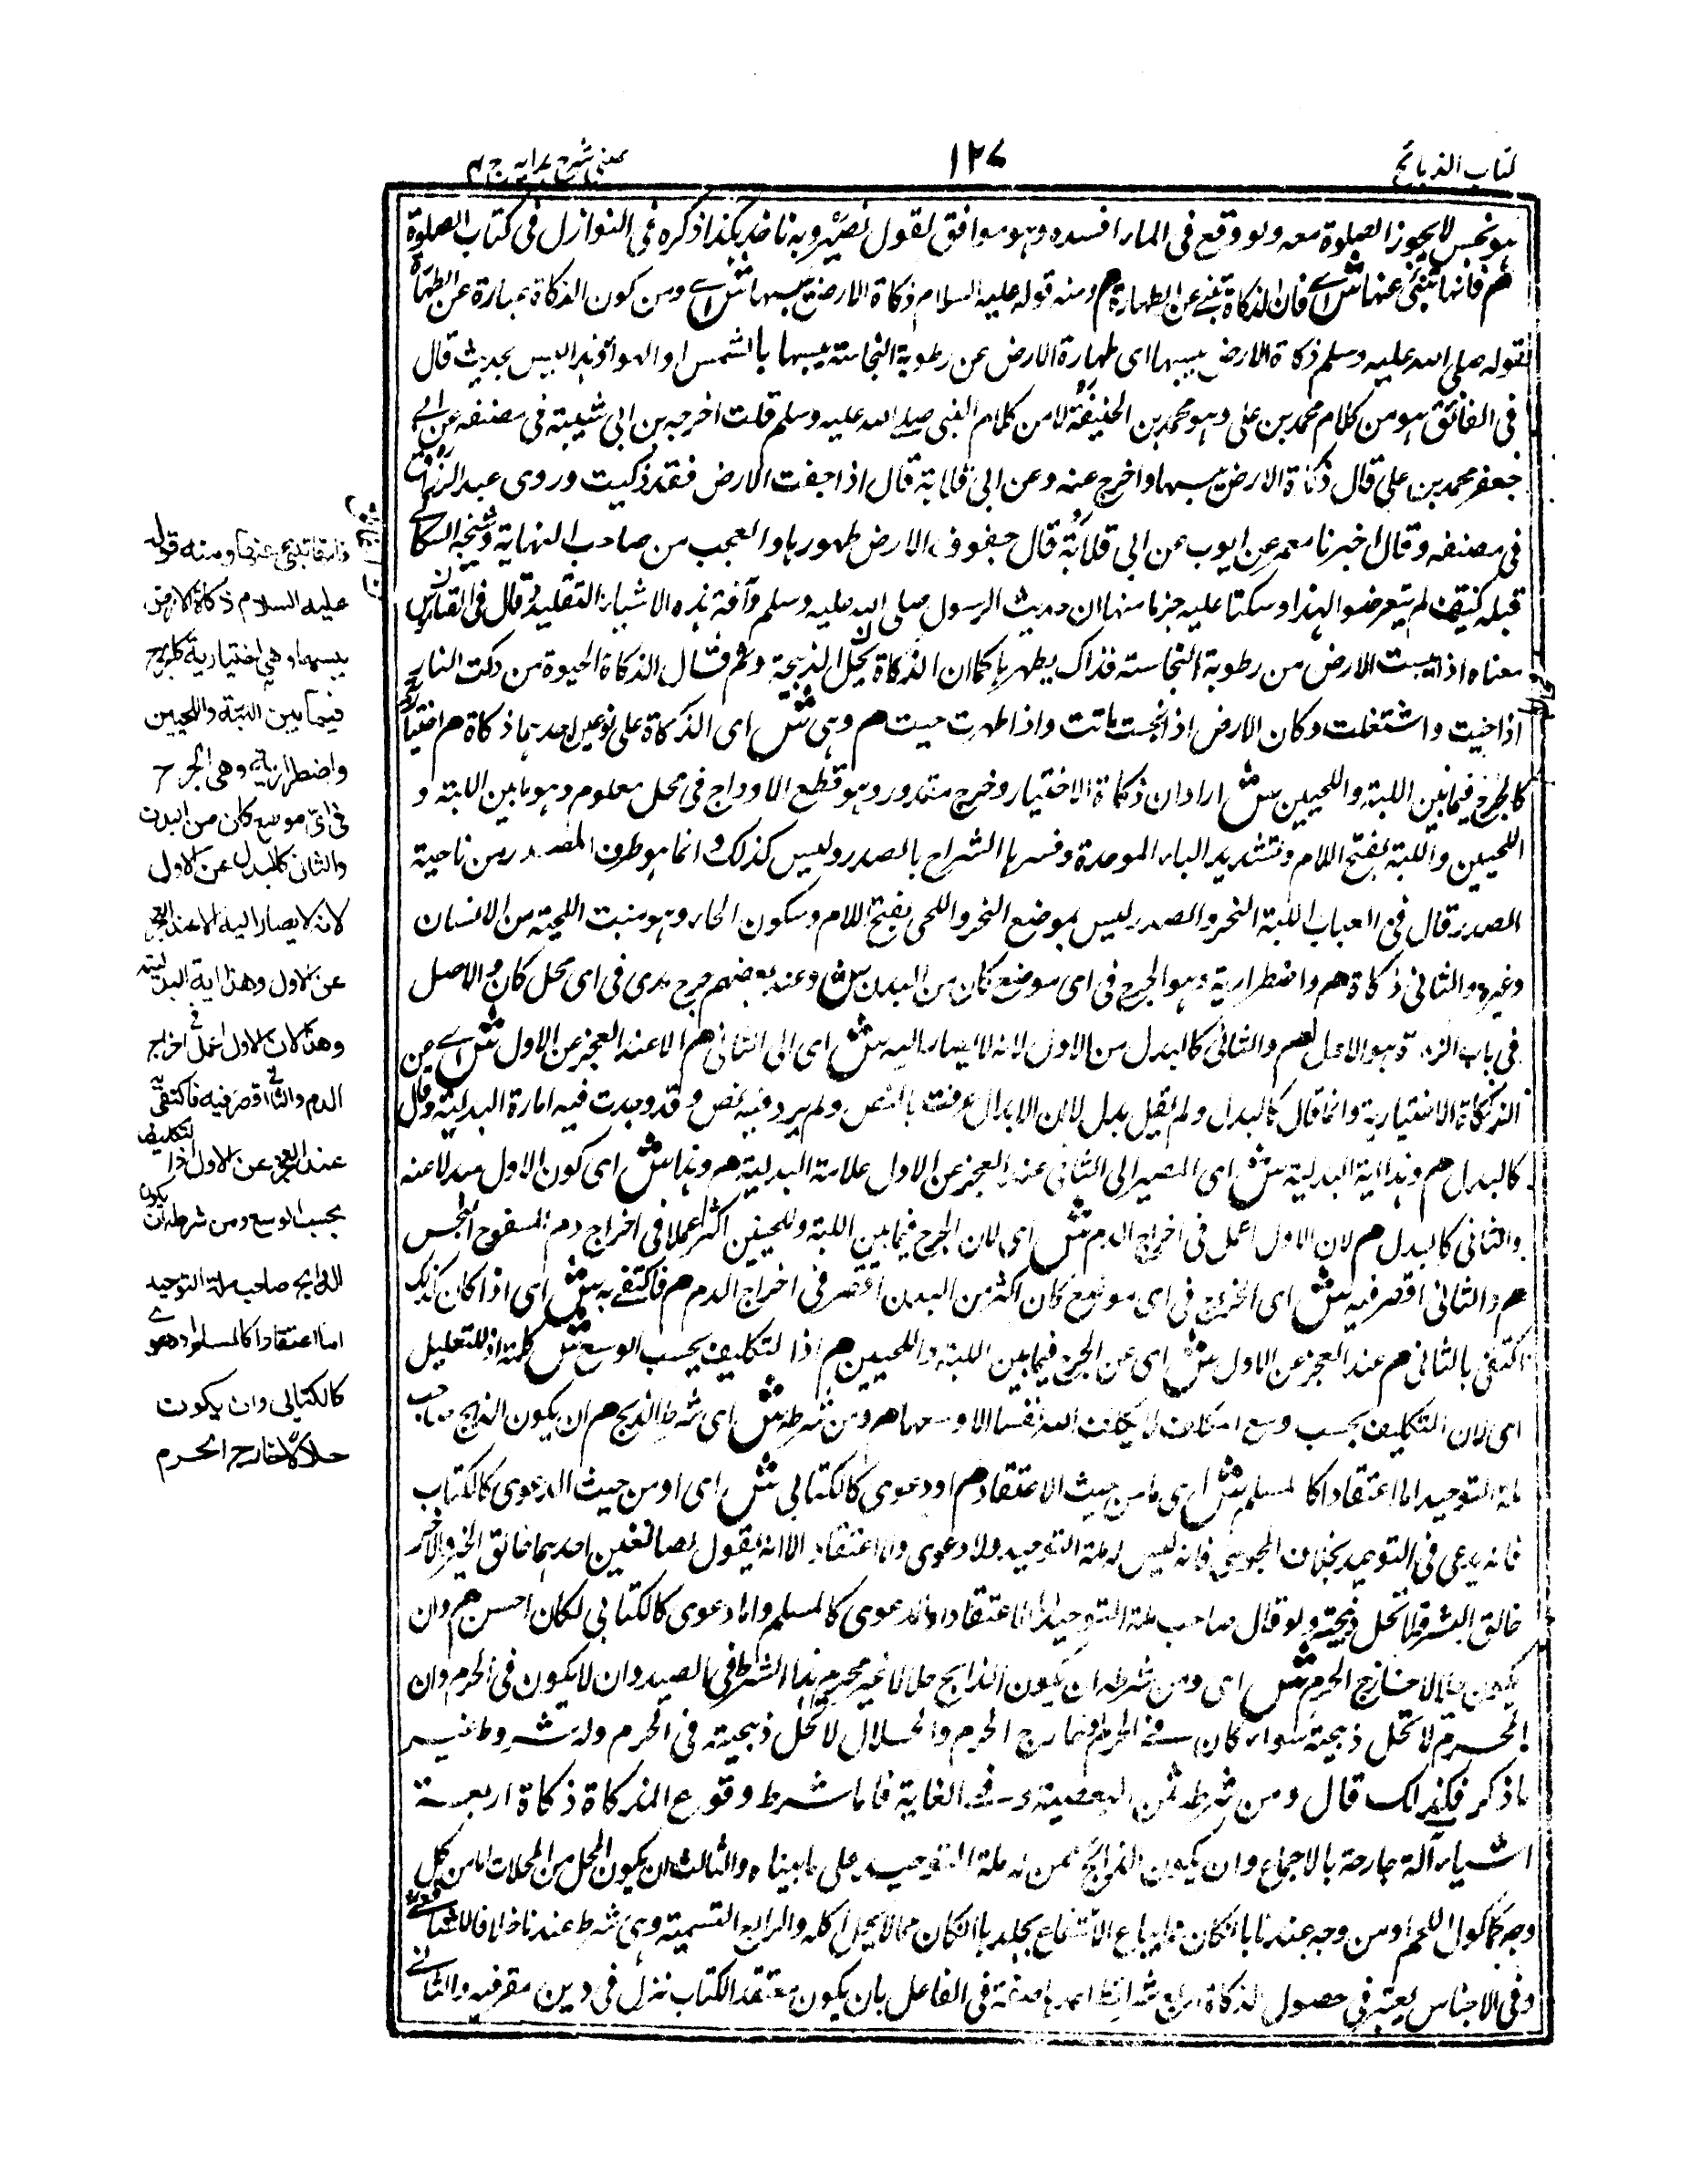 كتاب الذبائح
١٢٧
عينى شرح هدايه ج ٤
هو نجس لا يجوز الصلوة معه ولو وقع فى الماء افسده وهو موافق لقول نصير وبه ناخذ هكذا ذكره فى النوازل فى كتاب الصلوة
هم فانها تنبئ عنها ش اے فان الذكاة تنبئ عن الطهارة هم ومنه قوله عليه السلام ذكاة الارض يبسها ش اے ومن كون الذكاة عبارة عن الطهارة
قوله صلى الله عليه وسلم ذكاة الارض يبسها اى طهارة الارض عن رطوبة النجاسة يبسها بالشمس او الهواء وهذا ليس بحديث قال
فى الفائق هو من كلام محمد بن على وهو محمد بن الحنفية لا من كلام النبى صلى الله عليه وسلم قلت اخرجه بن ابى شيبة فى مصنفه عن ابى
جعفر محمد بن على قال ذكاة الارض يبسها واخرج عنه وعن ابى قلابة قال اذا جفت الارض فقد ذكيت وروى عبد الرزاق
فى مصنفه وقال اخبرنا معمر عن ايوب عن ابى قلابة قال جفوف الارض طهورها والعجب من صاحب النهاية وشيخه السكاكى
قبله كيف لم يتعرضوا لهذا وسكتا عليه جزما منهما ان حديث الرسول صلى الله عليه وسلم وآفة هذه الاشياء التقليد وقال فى الفائق
معناه اذا يبست الارض من رطوبة النجاسة فذاك يطهرها كما ان الذكاة تحل الذبيحة وثم قال الذكاة الحيوة من ذكت النار
اذا حييت واشتعلت وكان الارض اذا نجست ماتت واذا طهرت حييت هم وهى ش اى الذكاة على نوعين احدهما ذكاة هم اختيارية
كالجرح فيما بين اللبة واللحيين ش اراد ان ذكاة الاختيار وجرح مقدور وهو قطع الاوداج فى محل معلوم وهو ما بين اللبة و
اللحيين واللبة بفتح اللام وتشديد الباء الموحدة وفسرها الشراح بالصدر وليس كذلك وانما هو طرف الصدر من ناحية
الصدر قال فى العباب اللبة النحر والصدر ليس بموضع النحر واللحى بفتح اللام وسكون الحاء وهو منبت اللحية من الانسان
وغيره والثانى ذكاة هم واضطرارية وهو الجرح فى اى موضع كان من البدن ش وعند بعضهم جرح مدمى فى اى محل كان والاصل
فى باب الذكاة وهو الاصل هم والثانى كالبدل من الاول لانه لا يصار اليه ش اى الى الثانى هم الا عند العجز عن الاول ش اے عن
الذكاة الاختيارية وانما قال كالبدل ولم يقل بدل لان الابدال عرفت بالنص ولم يرد فيه نص وقد وجدت فيه امارة البدلية وقال
كالبدل هم وهذا آية البدلية ش اى المصير الى الثانى عند العجز عن الاول علامة البدلية هم وهذا ش اى كون الاول مبدلا عنه
والثانى كالبدل هم لان الاول اعمل فى اخراج الدم ش اى لان الجرح فيما بين اللبة واللحيين اكثر عملا فى اخراج دم المسفوح النجس
هم والثانى اقصر فيه ش اى الجرح فى اى موضع كان اكثر من البدن اقصر فى اخراج الدم هم فاكتفى به ش اى اذا كان كذلك
اكتفى بالثانى هم عند العجز عن الاول ش اى عن الجرح فيما بين اللبة واللحيين هم اذا التكليف بحسب الوسع ش كلمة اذ للتعليل
اى لان التكليف بحسب وسع المكلف لا يكلف الله نفسا الا وسعها هم ومن شرطه ش اى شرط الذبح هم ان يكون الذابح صاحب
ملة التوحيد اما اعتقادا كالمسلم ش اى اما من حيث الاعتقاد هم او دعوى كالكتابى ش اى او من حيث الدعوى كالكتاب
فانه يدعى فى التوحيد بخلاف المجوسى فانه ليس له ملة التوحيد ولا دعوى ولا اعتقاد الا انه يقول لصانعين احدهما خالق الخير والآخر
خالق الشر فلا تحل ذبيحته ولو قال صاحب ملة التوحيد اما اعتقادا كالمسلم واما دعوى كالكتابى لكان احسن هم وان
يكون حلالا خارج الحرم ش اى ومن شرطه ان يكون الذابح حلالا غير محرم هذا الشرط فى الصيد وان لا يكون فى الحرم وان
المحرم لا تحل ذبيحته سواء كان فى الحرم او خارج الحرم والحلال لا تحل ذبيحته فى الحرم وله شروط غير
ما ذكر فكذلك قال ومن شرطه بمن التبعيضية وفى الغاية فاما شرط وقوع الذكاة ذكاة اربعة
اشياء آلة جارحة بالاجماع وان يكون الذابح ممن له ملة التوحيد على ما بيناه والثالث ان يكون المحل من المحلات اما من كل
وجه كماكول اللحم او من وجه عندنا بان كان مما يباع الانتفاع بجلده بان كان مما لا يحل اكله والرابع التسمية وهى شرط عندنا خلافا للشافعى
وفى الاجناس يعتبر فى حصول الذكاة اربع شرائط احدها صفة فى الفاعل بان يكون معتقد الكتاب نزل فى دين مقر فيه والثانى
فانها تنبئ عنها ومنه قوله
عليه السلام ذكاة الارض
يبسها وهى اختيارية كالجرح
فيما بين اللبة واللحيين
واضطرارية وهى الجرح
فى اى موضع كان من البدن
والثانى كالبدل عن الاول
لانه لا يصار اليه الا عند العجز
عن الاول وهذا آية البدلية
وهذا لان الاول اعمل فى اخراج
الدم والثانى اقصر فيه فاكتفى به
عند العجز عن الاول اذ التكليف
بحسب الوسع ومن شرطه ان يكون
الذابح صاحب ملة التوحيد
اما اعتقادا كالمسلم او دعوى
كالكتابى وان يكون
حلالا خارج الحرم